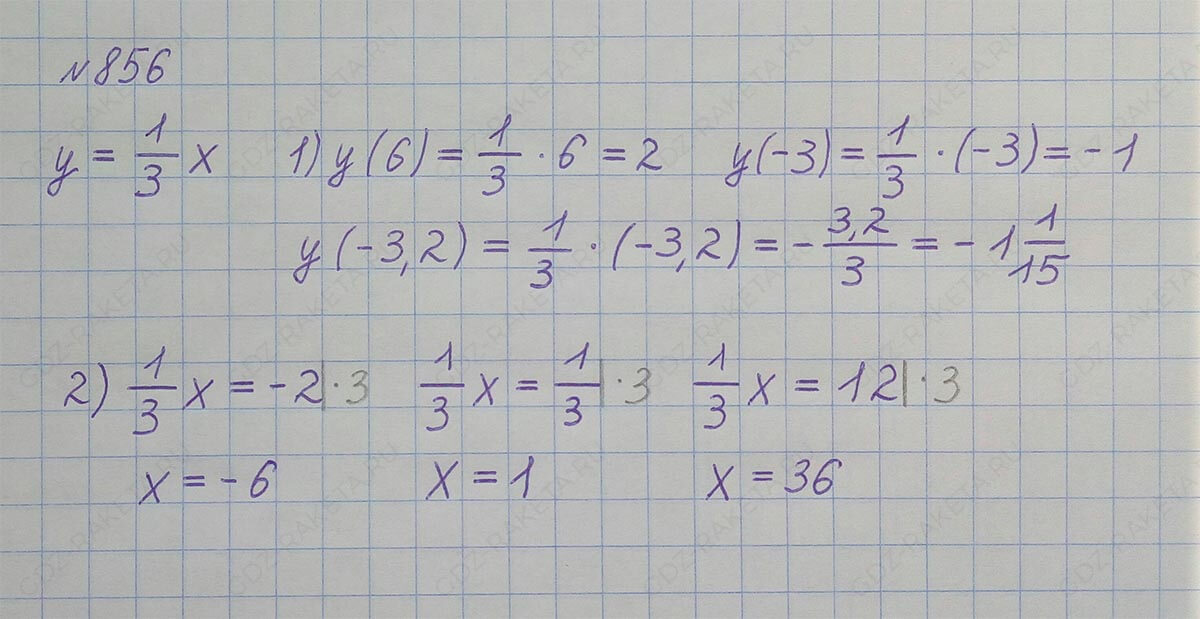 №856
y = 1/3 x   1) y(6) = 1/3 · 6 = 2   y(-3) = 1/3 · (-3) = -1
y(-3,2) = 1/3 · (-3,2) = - 3,2/3 = -1 1/15
2) 1/3 x = -2 | · 3   1/3 x = 1/3 | · 3   1/3 x = 12 | · 3
x = -6   x = 1   x = 36
GDZ-RAKETA.RU